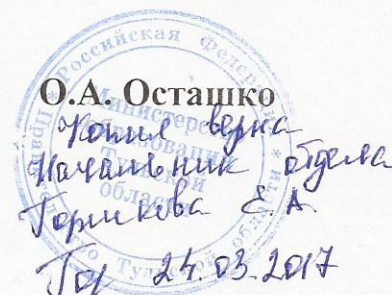 О.А. Осташко
Копия верна
Начальник отдела
Горшкова Е.А.
Гор 24.03.2017
Российская Федерация
Министерство
образования
Тульской
области